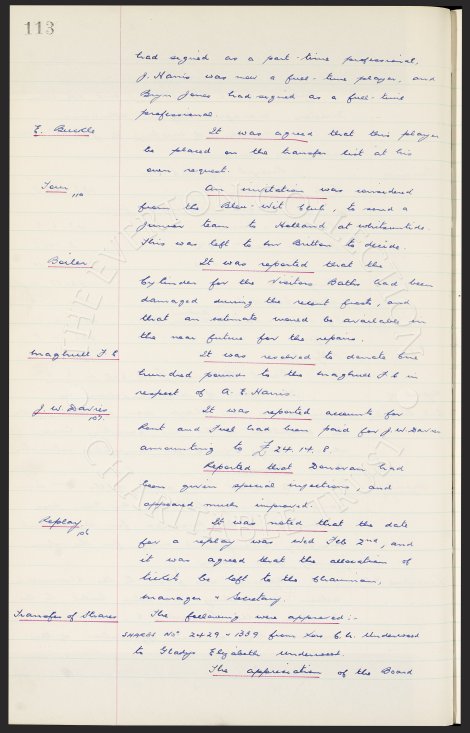 113
had signed as a part-time professional,
J. Harris was now a full-time player, and
Bryn Jones had signed as a full-time
professional
E. Buckle
It was agreed that this player
be placed on the transfer list at his
own request.
Tour
An invitation was considered
from the Blau-Wit Club, to send a
Junior team to Holland at Whitsuntide.
This was left to Mr Britton to decide.
Boiler
It was reported that the
Cylinder for the Visitors Baths had been
damaged during the recent frosts, and
that an estimate would be available in
the near future for the repairs.
Maghull F.C
It was resolved to donate one
hundred pounds to the Maghull F.C in
respect of A. E. Harris.
J. W. Davies
107
It was reported accounts for
Rent and Fuel had been paid for J W Davies
amounting to £24.14.8.
Reported that Donovan had
been given special injections, and
appeared much improved.
Replay
106
It was noted that the date
for a replay was Wed Feb 2nd, and
it was agreed that the allocation of
tickets be left to the Chairman,
Manager & Secretary.
Transfer of Shares
The following were approved:-
SHARES Nos 2429 & 1339 from Exors C.H. Underwood
to Gladys Elizabeth Underwood.
The appreciation of the Board
THE EVERTON COLLECTION
CHARITABLE TRUST